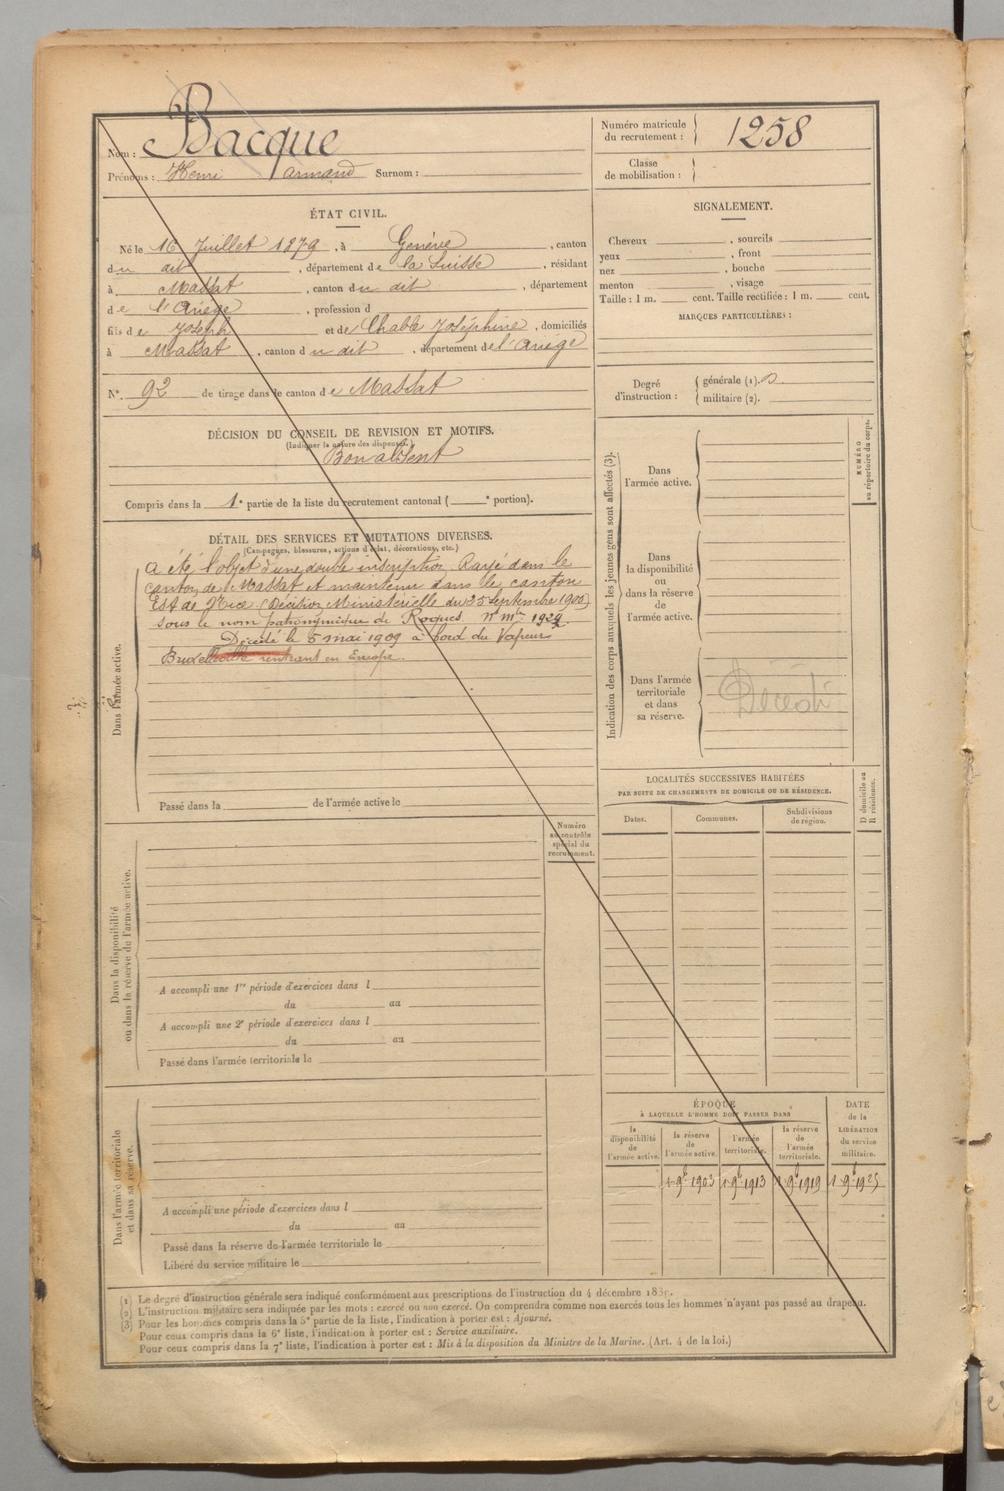 Nom : Bacque
Prénoms : Henri Armand Surnom :
Numéro matricule du recrutement : 1258
Classe de mobilisation :
ÉTAT CIVIL.
Né le 16 Juillet 1879, à Genève, canton
du dit, département de la Suisse, résidant
à Massat, canton du dit, département
de l'Ariège, profession d
fils de Joseph et de Chable Joséphine, domiciliés
à Massat, canton du dit, département de l'Ariège
N° 92 de tirage dans le canton de Massat
DÉCISION DU CONSEIL DE REVISION ET MOTIFS.
(Indiquer la nature des dispenses.)
Bon absent
Compris dans la 1e partie de la liste du recrutement cantonal ( e portion).
DÉTAIL DES SERVICES ET MUTATIONS DIVERSES.
(Campagnes, blessures, actions d'éclat, décorations, etc.)
Dans l'armée active.
A été l'objet d'une double inscription Rayé dans le
canton de Massat et maintenu dans le canton
Est de Nice (Décision Ministérielle du 25 Septembre 1900)
sous le nom patronymique de Roques. N° mle
Décédé le 5 mai 1909 à bord du Vapeur
Bruxellesville rentrant en Europe.
Passé dans la de l'armée active le
Numéro au contrôle spécial du recrutement.
Dans la disponibilité ou dans la réserve de l'armée active.
A accompli une 1re période d'exercices dans l
du au
A accompli une 2e période d'exercices dans l
du au
Passé dans l'armée territoriale le
Dans l'armée territoriale et dans sa réserve.
A accompli une période d'exercices dans l
du au
Passé dans la réserve de l'armée territoriale le
Libéré du service militaire le
SIGNALEMENT.
Cheveux , sourcils
yeux , front
nez , bouche
menton , visage
Taille : 1 m. cent. Taille rectifiée : 1 m. cent.
MARQUES PARTICULIÈRES :
Degré d'instruction : générale (1).
militaire (2).
Indication des corps auxquels les jeunes gens sont affectés (3).
NUMÉRO au répertoire du corps.
Dans
l'armée active.
Dans
la disponibilité
ou
dans la réserve
de
l'armée active.
Dans l'armée
territoriale
et dans
sa réserve.
Décédé
LOCALITÉS SUCCESSIVES HABITÉES
PAR SUITE DE CHANGEMENTS DE DOMICILE OU DE RÉSIDENCE.
D domicile ou R résidence.
Dates. Communes. Subdivisions de région.
ÉPOQUE
À LAQUELLE L'HOMME DOIT PASSER DANS
la disponibilité de l'armée active.
la réserve de l'armée active.
l'armée territoriale.
la réserve de l'armée territoriale.
DATE de la LIBÉRATION du service militaire.
1 9b 1903 1 9b 1913 1 9b 1919 1 9b 1925
(1) Le degré d'instruction générale sera indiqué conformément aux prescriptions de l'instruction du 4 décembre 1889.
(2) L'instruction militaire sera indiquée par les mots : exercé ou non exercé. On comprendra comme non exercés tous les hommes n'ayant pas passé au drapeau.
(3) Pour les hommes compris dans la 5e partie de la liste, l'indication à porter est : Ajourné.
Pour ceux compris dans la 6e liste, l'indication à porter est : Service auxiliaire.
Pour ceux compris dans la 7e liste, l'indication à porter est : Mis à la disposition du Ministre de la Marine. (Art. 4 de la loi.)